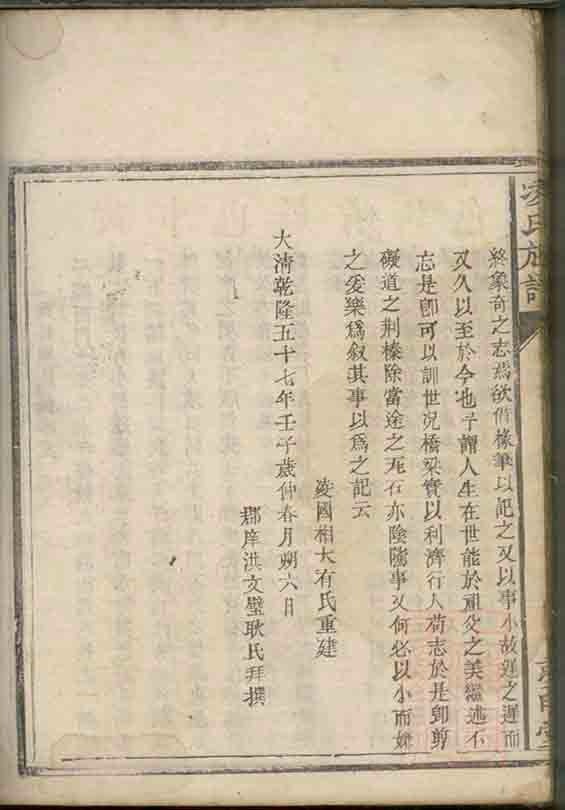 凌氏族譜
終象奇之志焉欲借椽筆以記之又以事小故遲之遲而
又久以至於今也予謂人生在世能於祖父之美繼述不
忘是卽可以訓世況橋梁實以利濟行人苟志於是卽剪
礙道之荆榛除當途之瓦石亦陰隲事又何必以小而嫌
之爰樂爲叙其事以爲之記云
凌國相大有氏重建
大清乾隆五十七年壬子歲仲春月朔六日
郡庠洪文璧耿氏拜撰